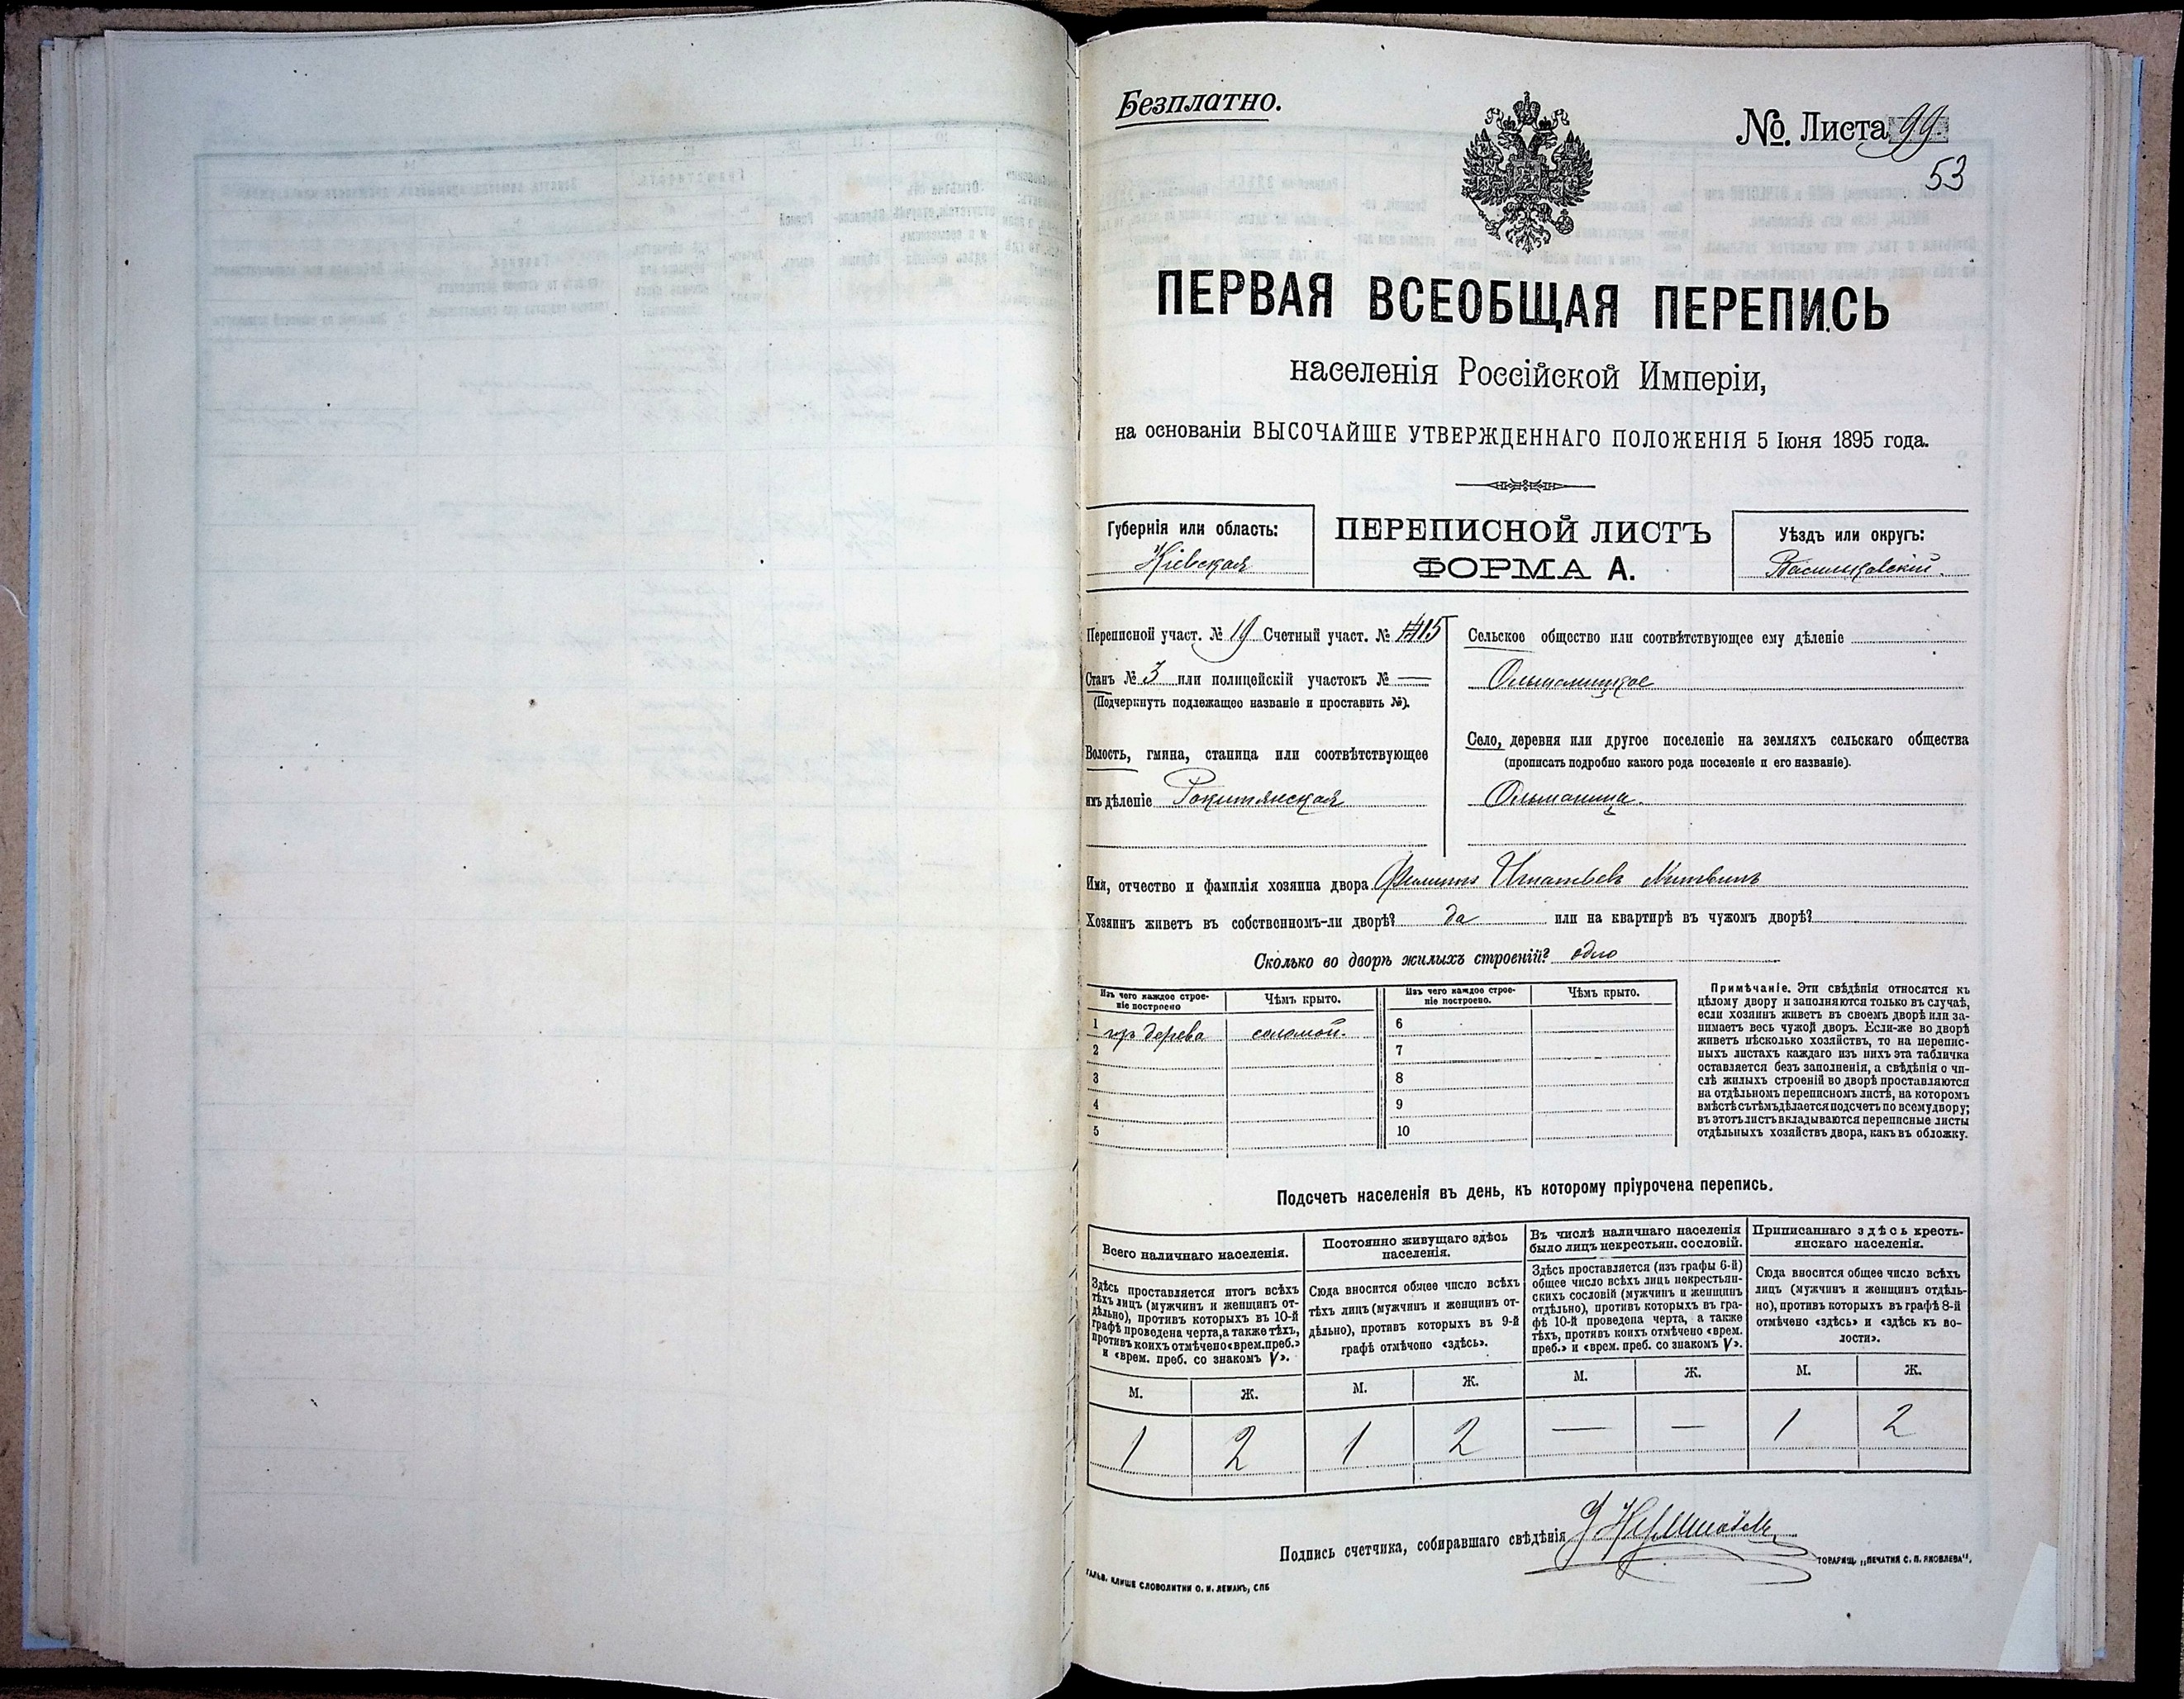 Безплатно.
№ Листа 99.
53
ПЕРВАЯ ВСЕОБЩАЯ ПЕРЕПИСЬ
населенія Россійской Имперіи,
на основаніи ВЫСОЧАЙШЕ УТВЕРЖДЕННАГО ПОЛОЖЕНІЯ 5 Іюня 1895 года.
Губернія или область:
Кіевская
ПЕРЕПИСНОЙ ЛИСТЪ
ФОРМА А.
Уѣздъ или округъ:
Васильковскій.
Переписной участ. № 19 Счетный участ. № 15
Станъ № 3 или полицейскій участокъ № —
(Подчеркнуть подлежащее названіе и проставить №).
Волость, гмина, станица или соотвѣтствующее
имъ дѣленіе Рокитянская
Сельское общество или соотвѣтствующее ему дѣленіе
Ольшаницкое
Село, деревня или другое поселеніе на земляхъ сельскаго общества
(прописать подробно какого рода поселеніе и его названіе).
Ольшаница.
Имя, отчество и фамилія хозяина двора Филиппъ Игнатьевъ Литвинъ
Хозяинъ живетъ въ собственномъ-ли дворѣ? да или на квартирѣ въ чужомъ дворѣ?
Сколько во дворѣ жилыхъ строеній? одно
Изъ чего каждое строе-
ніе построено
Чѣмъ крыто.
Изъ чего каждое строе-
ніе построено.
Чѣмъ крыто.
1 изъ дерева соломой. 6
2 7
3 8
4 9
5 10
Примѣчаніе. Эти свѣдѣнія относятся къ
цѣлому двору и заполняются только въ случаѣ,
если хозяинъ живетъ въ своемъ дворѣ или за-
нимаетъ весь чужой дворъ. Если-же во дворѣ
живетъ нѣсколько хозяйствъ, то на перепис-
ныхъ листахъ каждаго изъ нихъ эта табличка
оставляется безъ заполненія, а свѣдѣнія о чи-
слѣ жилыхъ строеній во дворѣ проставляются
на отдѣльномъ переписномъ листѣ, на которомъ
вмѣстѣ съ тѣмъ дѣлается подсчетъ по всему двору;
въ этотъ листъ вкладываются переписные листы
отдѣльныхъ хозяйствъ двора, какъ въ обложку.
Подсчетъ населенія въ день, къ которому пріурочена перепись.
Всего наличнаго населенія.
Здѣсь проставляется итогъ всѣхъ
тѣхъ лицъ (мужчинъ и женщинъ от-
дѣльно), противъ которыхъ въ 10-й
графѣ проведена черта, а также тѣхъ,
противъ коихъ отмѣчено «врем. преб.»
и «врем. преб. со знакомъ V».
Постоянно живущаго здѣсь
населенія.
Сюда вносится общее число всѣхъ
тѣхъ лицъ (мужчинъ и женщинъ от-
дѣльно), противъ которыхъ въ 9-й
графѣ отмѣчено «здѣсь».
Въ числѣ наличнаго населенія
было лицъ некрестьян. сословій.
Здѣсь проставляется (изъ графы 6-й)
общее число всѣхъ лицъ некрестьян-
скихъ сословій (мужчинъ и женщинъ
отдѣльно), противъ которыхъ въ гра-
фѣ 10-й проведена черта, а также
тѣхъ, противъ коихъ отмѣчено «врем.
преб.» и «врем. преб. со знакомъ V».
Приписаннаго здѣсь кресть-
янскаго населенія.
Сюда вносится общее число всѣхъ
лицъ (мужчинъ и женщинъ отдѣль-
но), противъ которыхъ въ графѣ 8-й
отмѣчено «здѣсь» и «здѣсь къ во-
лости».
М. Ж. М. Ж. М. Ж. М. Ж.
1 2 1 2 — — 1 2
Подпись счетчика, собиравшаго свѣдѣнія
ГАЛЬВ. КЛИШЕ СЛОВОЛИТНИ О. И. ЛЕМАНЪ, СПБ
ТОВАРИЩ. „ПЕЧАТНЯ С. П. ЯКОВЛЕВА“.